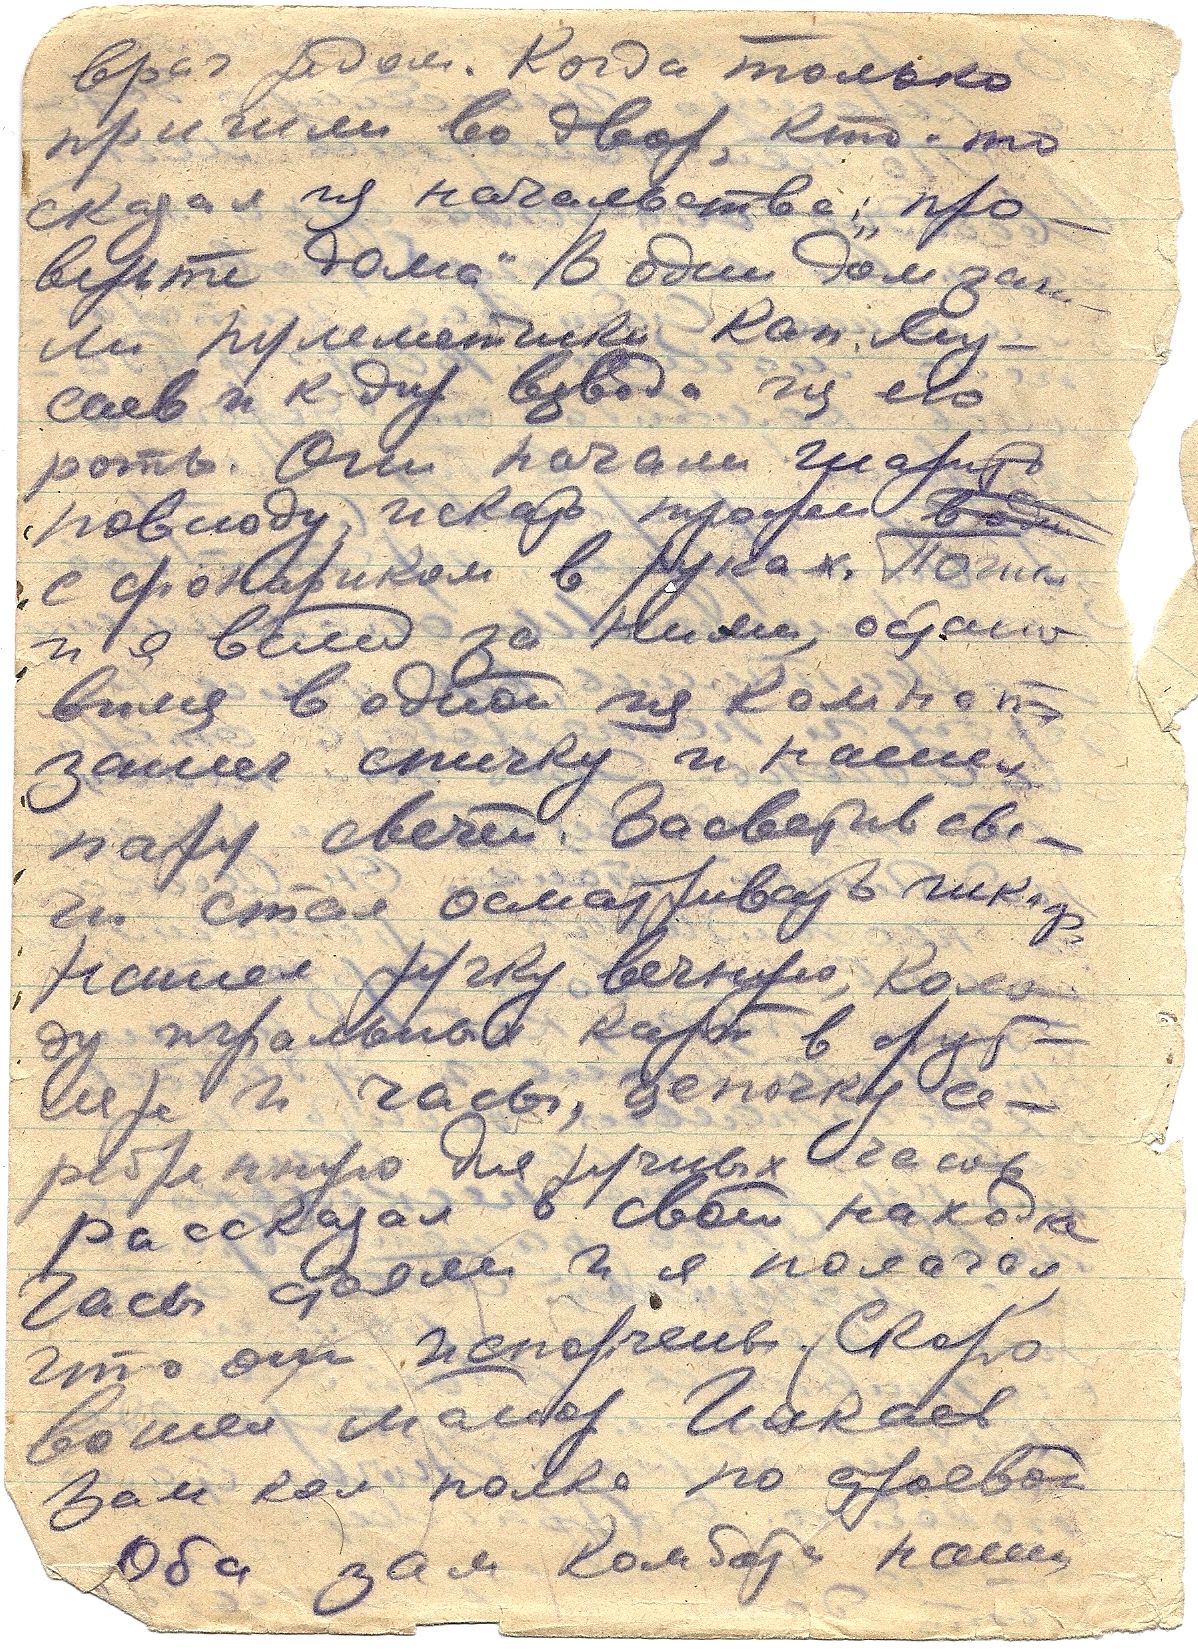 враг рядом. Когда только
пришли во двор, кто-то
сказал из начальства: „про-
верьте дома“ В один дом заш-
ли пулеметчики кап. Му-
саев и к-дир взвода из его
роты. Они начали шарить
повсюду, искать трофеи
с фонариком в руках. Пошел
и я вслед за ними, остано
вился в одной из комнат
зажег спичку и нашел
пару свечей. Засветив све-
чи стал осматривать шкаф
Нашел ручку вечную, коло-
ду игральных карт в фут-
ляре и часы, цепочку се-
ребрянную для ручных часов
рассказал о своей находке
Часы стояли и я полагал,
что они испорчены. Скоро
вошел майор
зам ком полка по строевой
Оба зам комбата наши